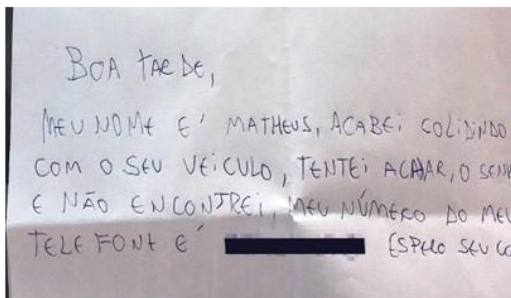 BOA TARDE,
MEU NOME E' MATHEUS, ACABEI COLIDINDO
COM O SEU VEICULO, TENTEI ACHAR, O SENH
E NÃO ENCONTREI, MEU NÚMERO DO MEU
TELEFONE E' ESPERO SEU CO